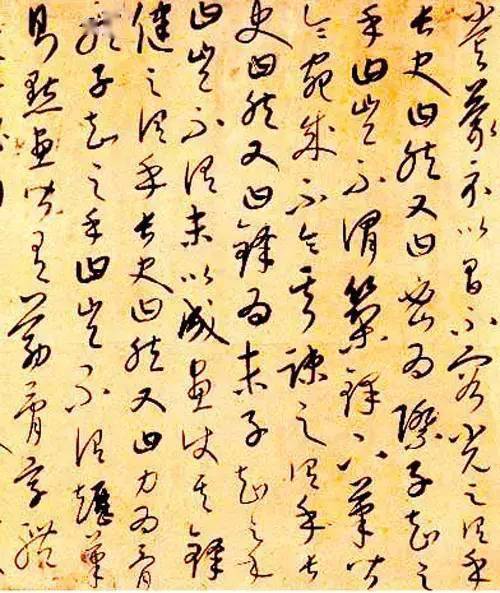 嘗蒙示以間不容光之謂乎
長史曰然又曰密為際子知之
乎曰豈不謂築鋒下筆皆
令宛成不令其疎之謂乎長
史曰然又曰鋒為末子知之乎
曰豈不謂末以成畫使其鋒
健之謂乎長史曰然又曰力為骨
體子知之乎曰豈不謂趯筆
則點畫皆有筋骨字體